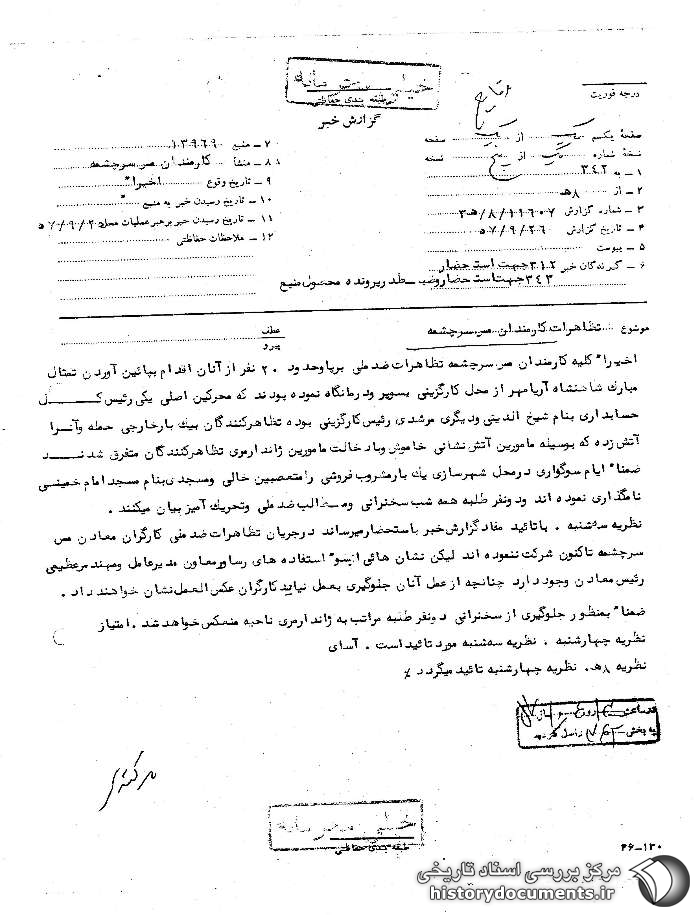 خیلی محرمانه
طبقه بندی حفاظتی
گزارش خبر
درجه فوریت
صفحه یکم یک از یک صفحه
نسخه شماره یک از پنج نسخه
۱ - به ۳۴۲
۲ - از ۸ ه
۳ - شماره گزارش ۱۱۶۰۷/۸/۳ه
۴ - تاریخ گزارش ۵۷/۹/۲۶
۵ - پیوست
۶ - گیرندگان خبر ۳۱۲ جهت استحضار
۳۴۳ جهت استحضار و ضبط در پرونده محصول منبع
۷ - منبع ۱۳۹۶۹
۸ - منشأ کارمندان مس سرچشمه
۹ - تاریخ وقوع اخیرا"
۱۰ - تاریخ رسیدن خبر به منبع "
۱۱ - تاریخ رسیدن خبر برهبر عملیات محل ۵۷/۹/۲۵
۱۲ - ملاحظات حفاظتی
موضوع تظاهرات کارمندان مس سرچشمه
عطف
پیرو
اخیرا" کلیه کارمندان مس سرچشمه تظاهرات ضد ملی برپا وحدود ۲۰ نفر از آنان اقدام بپائین آوردن تمثال
مبارک شاهنشاه آریامهر از محل کارگزینی بسویر ودرمانگاه نموده بودند که محرکین اصلی یکی رئیس کـل
حسابداری بنام شیخ الدینی ودیگری مرشدی رئیس کارگزینی بوده تظاهرکنندگان بیک بار خارجی حمله وآنرا
آتش زده که بوسیله مامورین آتش نشانی خاموش وبادخالت مامورین ژاندارمری تظاهرکنندگان متفرق شدند
ضمنا" ایام سوگواری درمحل شهرسازی یک بار مشروب فروشی را متعصبین خالی ومسجدی بنام مسجد امام خمینی
نامگذاری نموده اند ودونفر طلبه همه شب سخنرانی ومطالب ضد ملی وتحریک آمیز بیان میکنند .
نظریه سه شنبه . باتائید مفاد گزارش خبر باستحضار میرساند درجریان تظاهرات ضد ملی کارگران معادن مس
سرچشمه تاکنون شرکت ننموده اند لیکن نشان هائی از سوء استفاده های رساور معاون مدیرعامل ومهندس عظیمی
رئیس معادن وجود دارد چنانچه از عمل آنان جلوگیری بعمل نیاید کارگران عکس العمل نشان خواهند داد .
ضمنا" بمنظور جلوگیری از سخنرانی دونفر طلبه مراتب به ژاندارمری ناحیه منعکس خواهد شد . امتیاز
نظریه چهارشنبه . نظریه سه شنبه مورد تائید است . آسای
نظریه ۸ ه . نظریه چهارشنبه تائید میگردد
خیلی محرمانه
طبقه بندی حفاظتی
۲۶-۱۳۰
مرکز بررسی اسناد تاریخی
historydocuments.ir